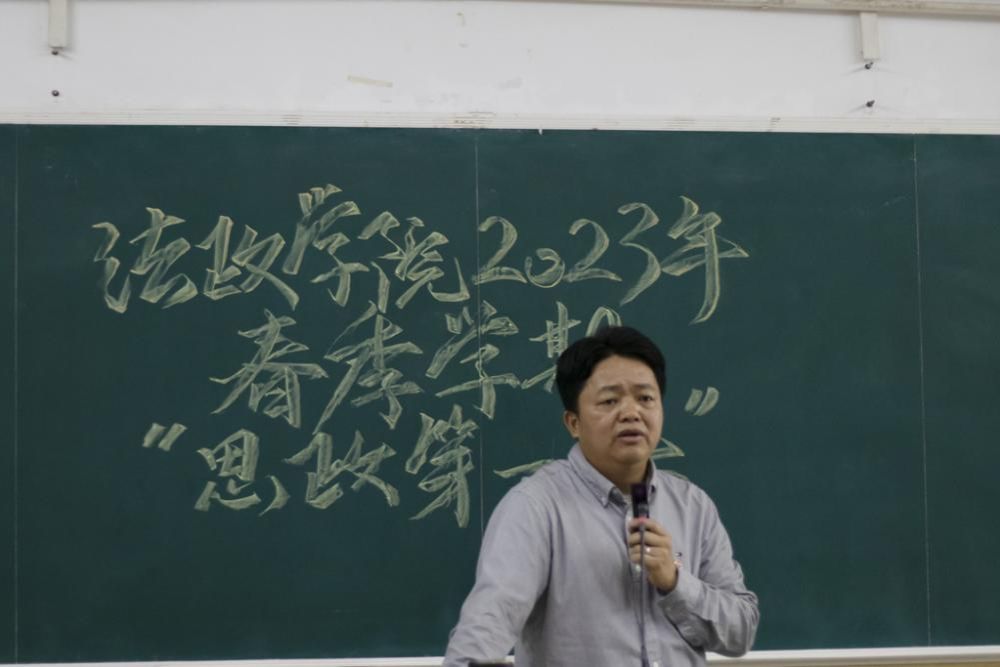 法政学院2023年
春季学期
"思政第一